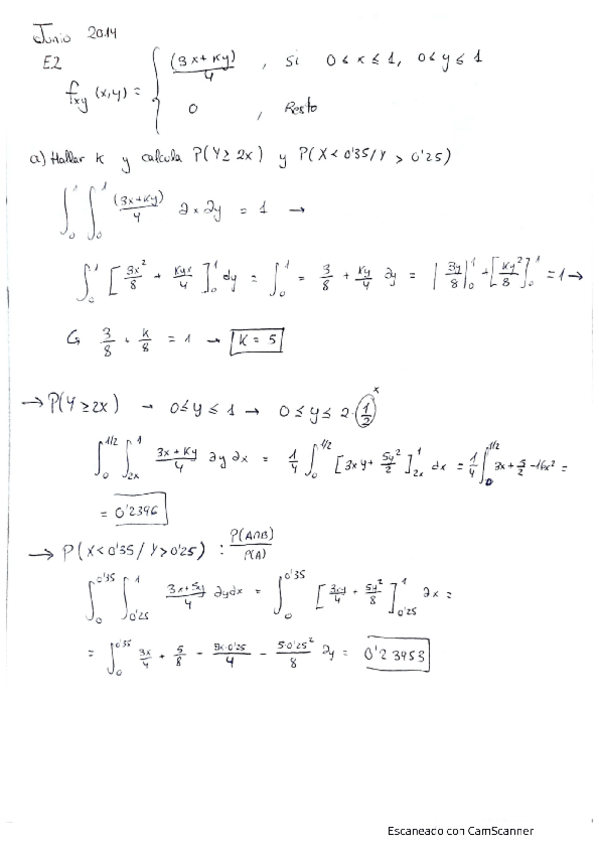 Junio 2014
E2
f_xy (x,y) = { (3x+Ky)/4 , si 0<x≤1, 0<y≤1
0 , Resto
a) Hallar K y calcula P(Y≥2x) y P(X<0'35/Y>0'25)
∫₀¹ ∫₀¹ (3x+Ky)/4 ∂x∂y = 1 →
∫₀¹ [3x²/8 + Kyx/4]₀¹ dy = ∫₀¹ = 3/8 + Ky/4 ∂y = |3y/8|₀¹ + [Ky²/8]₀¹ = 1 →
↳ 3/8 + K/8 = 1 → K = 5
→ P(Y≥2x) → 0≤y≤1 → 0≤y≤2·(1/2)^x
∫₀^1/2 ∫₂ₓ¹ (3x+Ky)/4 ∂y∂x = 1/4 ∫₀^1/2 [3xy + 5y²/2]₂ₓ¹ dx = 1/4 ∫₀^1/2 3x + 5/2 - 16x² =
= 0'2396
→ P(X<0'35/Y>0'25) : P(A∩B)/P(A)
∫₀^0'35 ∫_0'25^1 (3x+5y)/4 ∂y∂x = ∫₀^0'35 [3xy/4 + 5y²/8]_0'25^1 ∂x =
= ∫₀^0'35 3x/4 + 5/8 - 3x·0'25/4 - 5·0'25²/8 ∂y = 0'23453
Escaneado con CamScanner